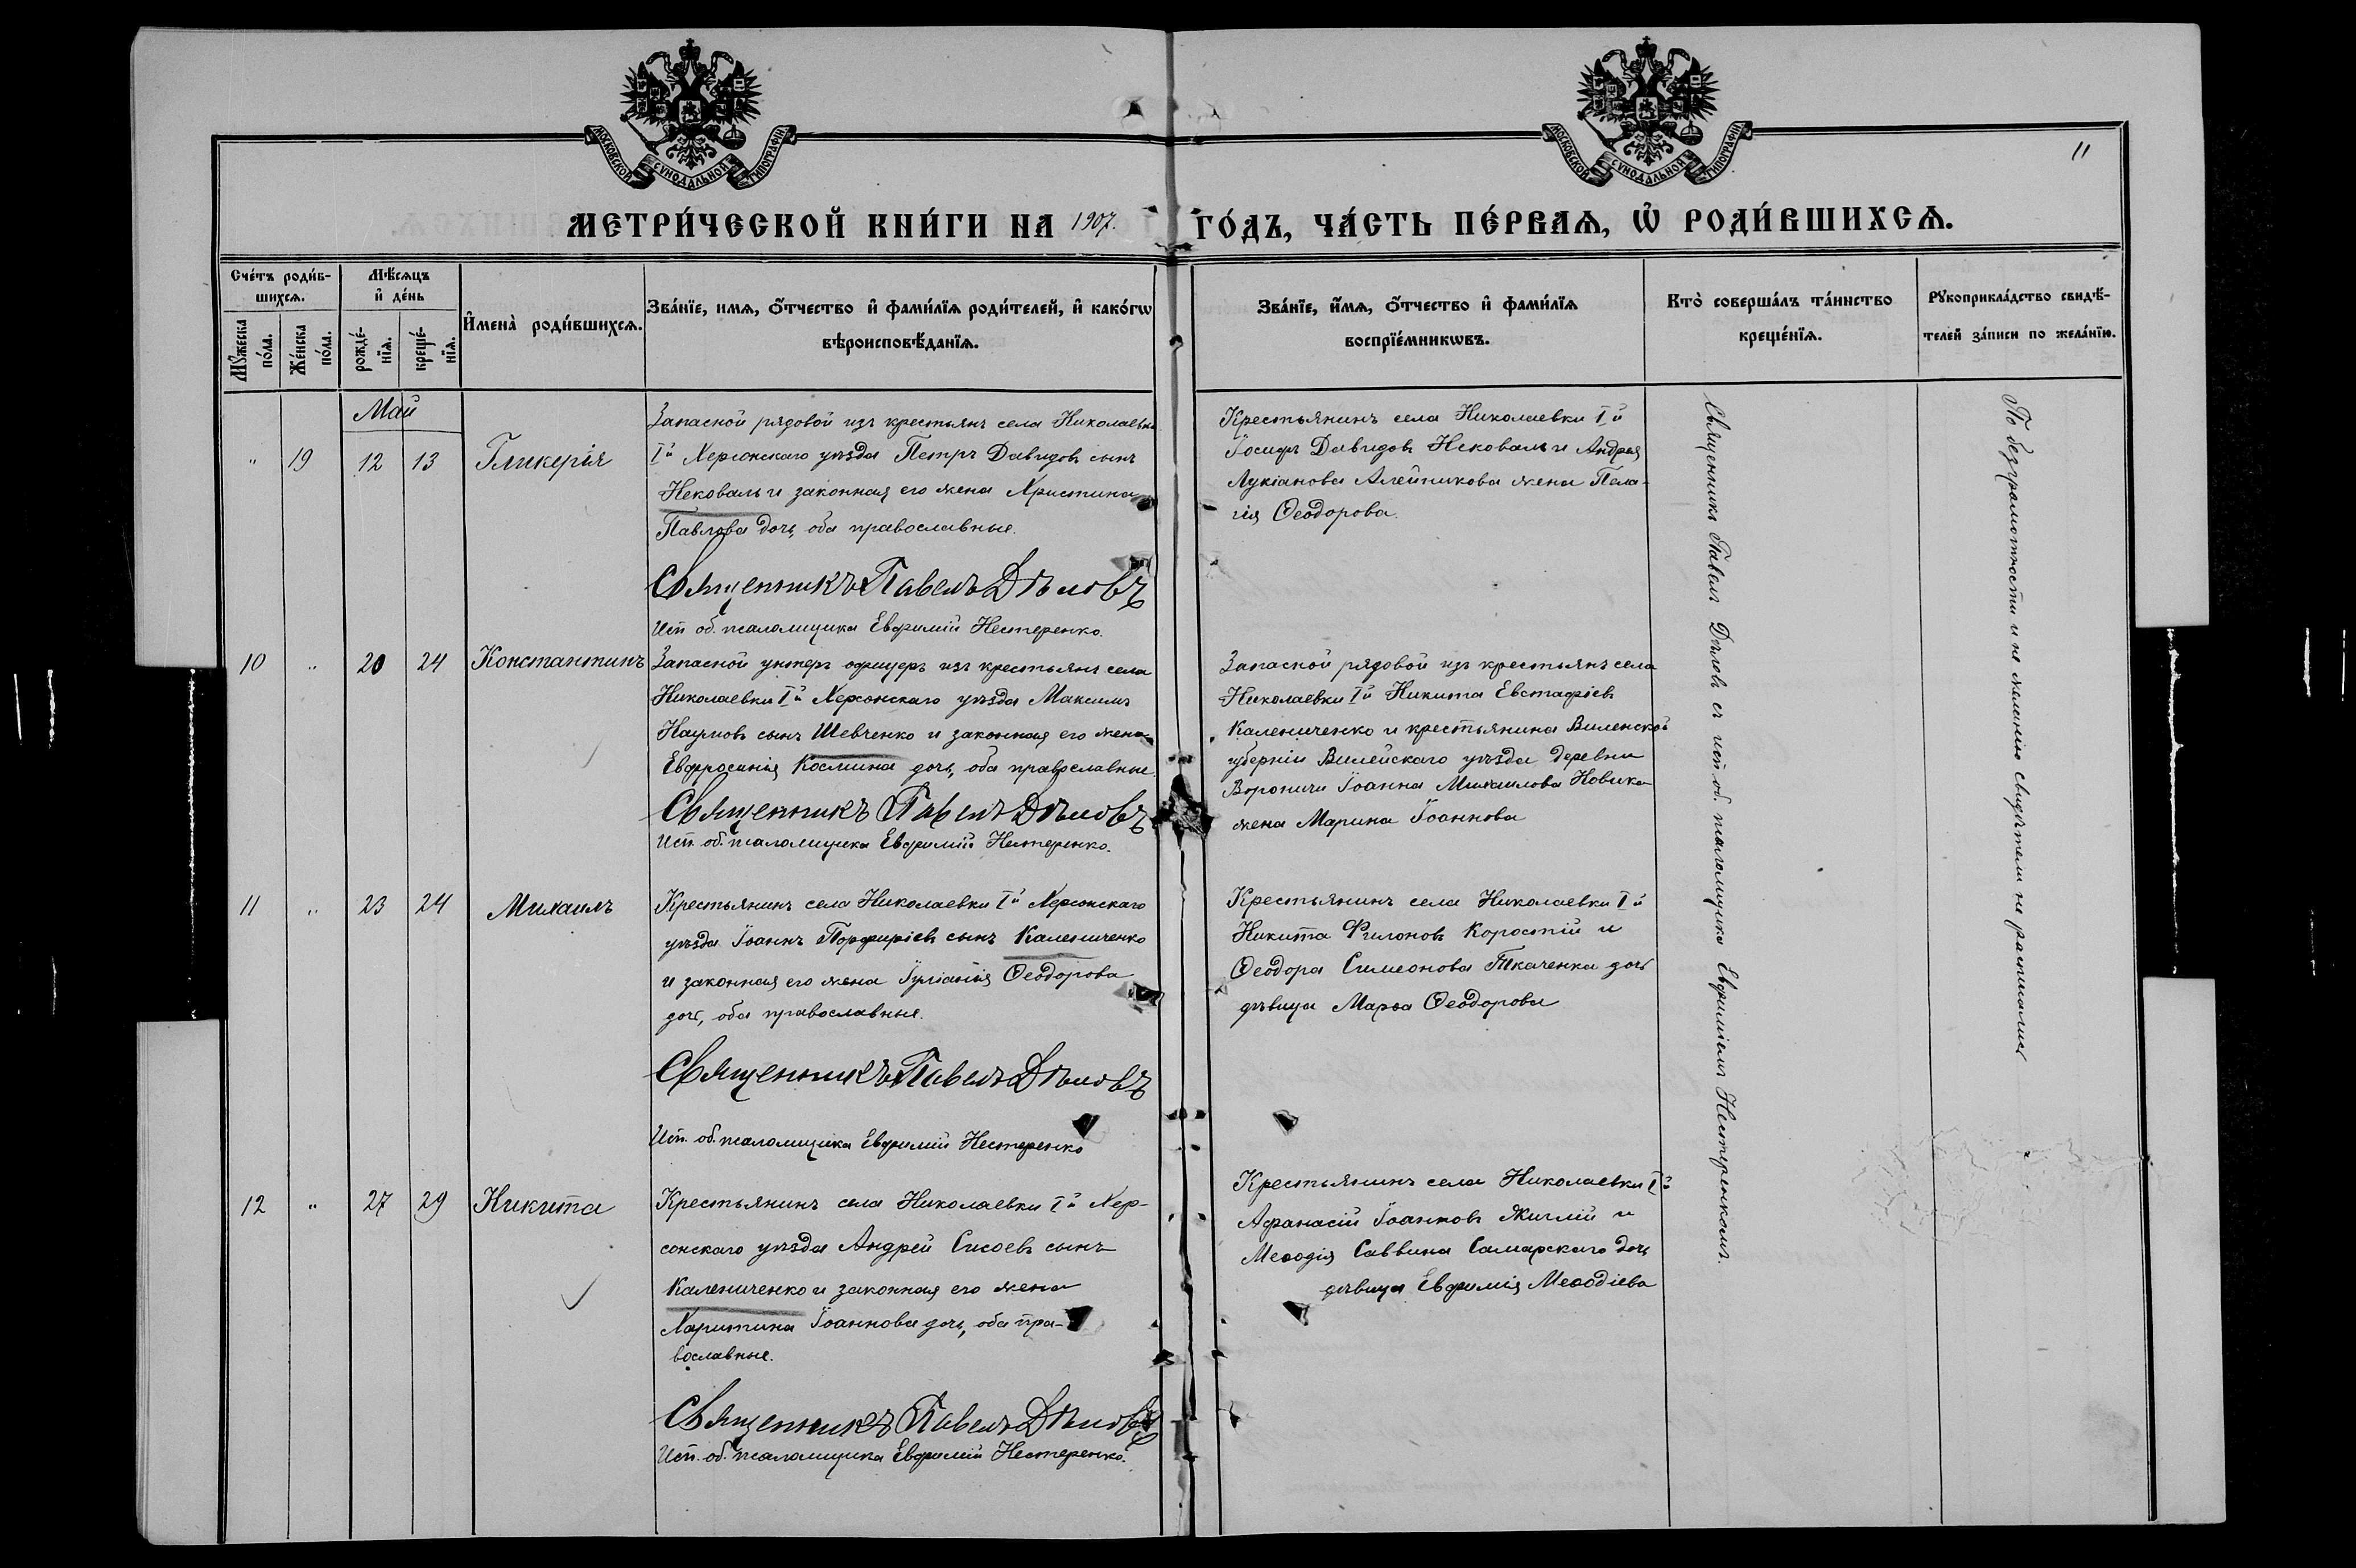 МОСКОВСКОЙ СѴНОДАЛЬНОЙ ТИПОГРАФІИ
МОСКОВСКОЙ СѴНОДАЛЬНОЙ ТИПОГРАФІИ
11
МЕТРИ́ЧЕСКОЙ КНИ́ГИ НА 1907. ГО́ДЪ, ЧА́СТЬ ПЕ́РВАѦ, Ѡ҆ РОДИ́ВШИХСѦ.
Сче́тъ роди́в-
шихсѧ.
Мꙋ́жеска по́ла.
Же́нска по́ла.
Мѣ́сѧцъ
и҆ де́нь
рожде́-
нїѧ.
креще́-
нїѧ.
И҆мена̀ роди́вшихсѧ.
Зва́нїе, имѧ, ѻ҆́тчество и҆ фами́лїѧ роди́телей, и҆ како́гѡ
вѣроисповѣ́данїѧ.
Зва́нїе, и҆́мѧ, ѻ҆́тчество и҆ фами́лїѧ
воспрїе́мникѡвъ.
Кто̀ соверша́лъ та́инство
креще́нїѧ.
Рꙋкоприкла́дство свидѣ́-
телей за́писи по жела́нїю.
Май
" 19 12 13 Гликерія
Запасной рядовой изъ крестьянъ села Николаевки
Iй Херсонскаго уѣзда Петръ Давидовъ сынъ
Нековаль и законная его жена Христина
Павлова дочь, оба православные.
Священникъ Павелъ Дѣловъ
Исп. об. псаломщика Евфимій Нестеренко.
Крестьянинъ села Николаевки Iй
Іосифъ Давидовъ Нековаль и Андрея
Лукіанова Алейникова жена Пела-
гія Ѳеодорова.
10 " 20 24 Константинъ
Запасной унтеръ офицеръ изъ крестьянъ села
Николаевки Iй Херсонскаго уѣзда Максимъ
Наумовъ сынъ Шевченко и законная его жена
Евфросинія Космина дочь, оба православные.
Священникъ Павелъ Дѣловъ
Исп. об. псаломщика Евфимій Нестеренко.
Запасной рядовой изъ крестьянъ села
Николаевки Iй Никита Евстафіевъ
Калениченко и крестьянина Виленской
губерніи Вилейскаго уѣзда деревни
Воропичи Іоанна Михаилова Новика
жена Марина Іоаннова
11 " 23 24 Михаилъ
Крестьянинъ села Николаевки Iй Херсонскаго
уѣзда Іоаннъ Порфиріевъ сынъ Калениченко
и законная его жена Іуліанія Ѳеодорова
дочь, оба православные.
Священникъ Павелъ Дѣловъ
Исп. об. псаломщика Евфимій Нестеренко
Крестьянинъ села Николаевки Iй
Никита Филоновъ Коростій и
Ѳеодора Симеонова Ткаченка дочь
дѣвица Марѳа Ѳеодорова
12 " 27 29 Никита
Крестьянинъ села Николаевки Iй Хер-
сонскаго уѣзда Андрей Сисоевъ сынъ
Калениченко и законная его жена
Харитина Іоаннова дочь, оба пра-
вославные.
Священникъ Павелъ Дѣловъ
Исп. об. псаломщика Евфимій Нестеренко.
Крестьянинъ села Николаевки Iй
Афанасій Іоанновъ Жиглій и
Меѳодія Саввина Самарскаго дочь
дѣвица Евфимія Меѳодіева
Священникъ Павелъ Дѣловъ съ исп. об. псаломщика Евфиміемъ Нестеренкомъ.
По безграмотности и не желанію свидѣтели не росписались